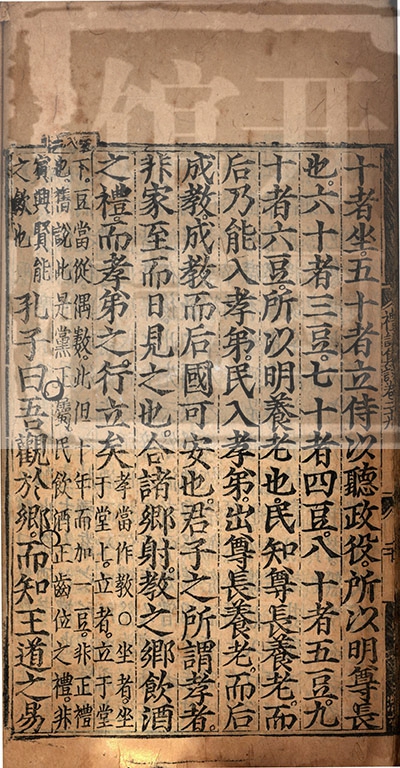 十者坐。五十者立侍以聽政役。所以明尊長
也。六十者三豆。七十者四豆。八十者五豆。九
十者六豆。所以明養老也。民知尊長養老。而
后乃能入孝弟。民入孝弟。出尊長養老。而后
成教。成教而后國可安也。君子之所謂孝者。
非家至而日見之也。合諸鄉射。教之鄉飲酒
之禮。而孝弟之行立矣
孝當作教。○坐者。坐
于堂上。立者。立于堂
下。豆當從偶數。此但十年而加一豆。非正禮
也。舊說此是黨正屬民飲酒正齒位之禮。非
賓興賢能
之飲也
孔子曰吾觀於鄉。而知王道之易